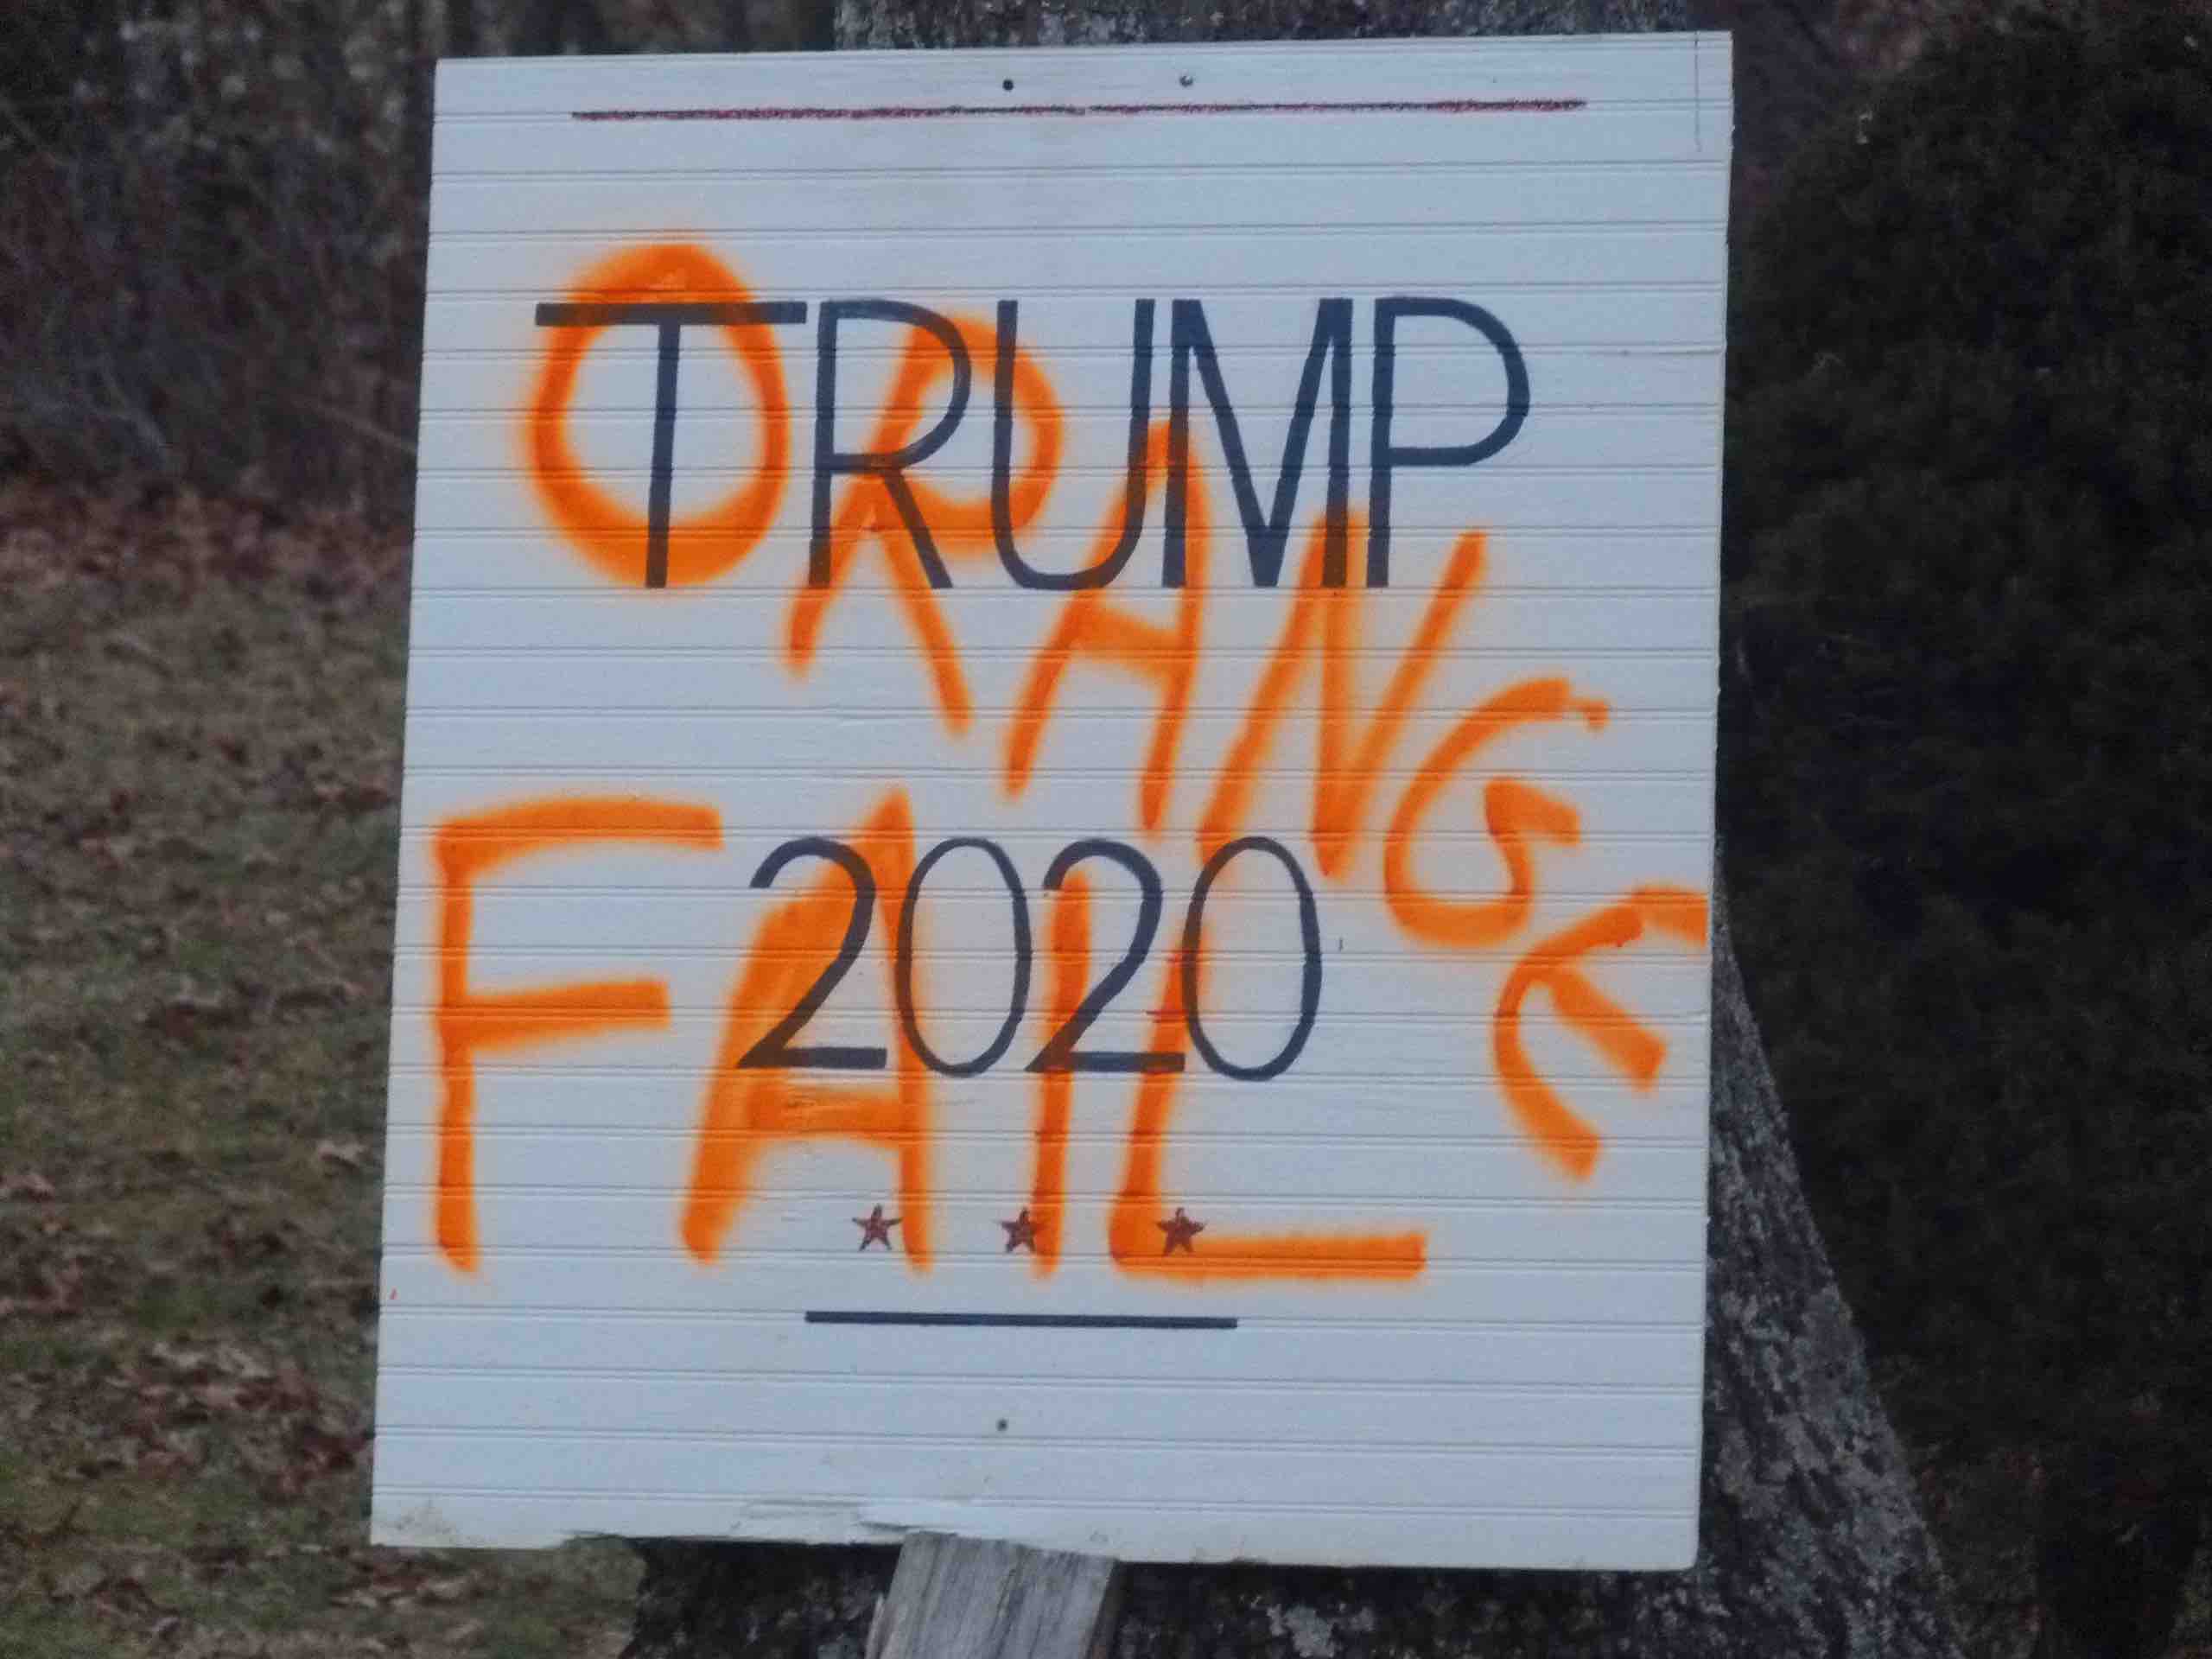 TRUMP
ORANGE
2020
FAIL